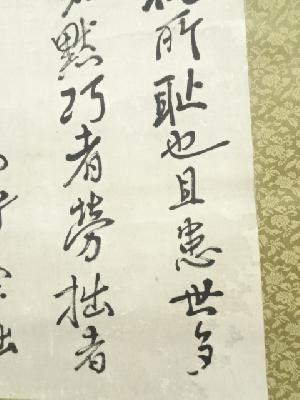 所耻也且患世多
默巧者勞拙者